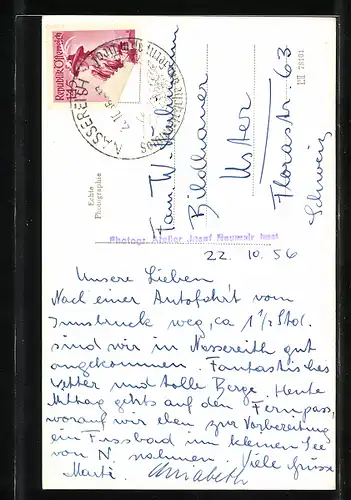 Republik Österreich
NASSEREITH
Echte
Photographie
Fam. W. Kuhlmann
Bildhauer
Uster
Florastr. 63
Schweiz
L/II 78104
Photogr. Atelier Josef Neumair
22. 10. 56
Unsere Lieben
Nach einer Autofahrt vom
Innsbruck weg, ca 1 1/2 Std.
sind wir in Nassereith gut
angekommen. Fantastisches
Wetter und tolle Berge. Heute
Mittag gehts auf den Fernpass,
worauf wir eben zur Vorbereitung
ein Fussbad im kleinen See
von N. nahmen. Viele Grüsse
Marti. Annabeth